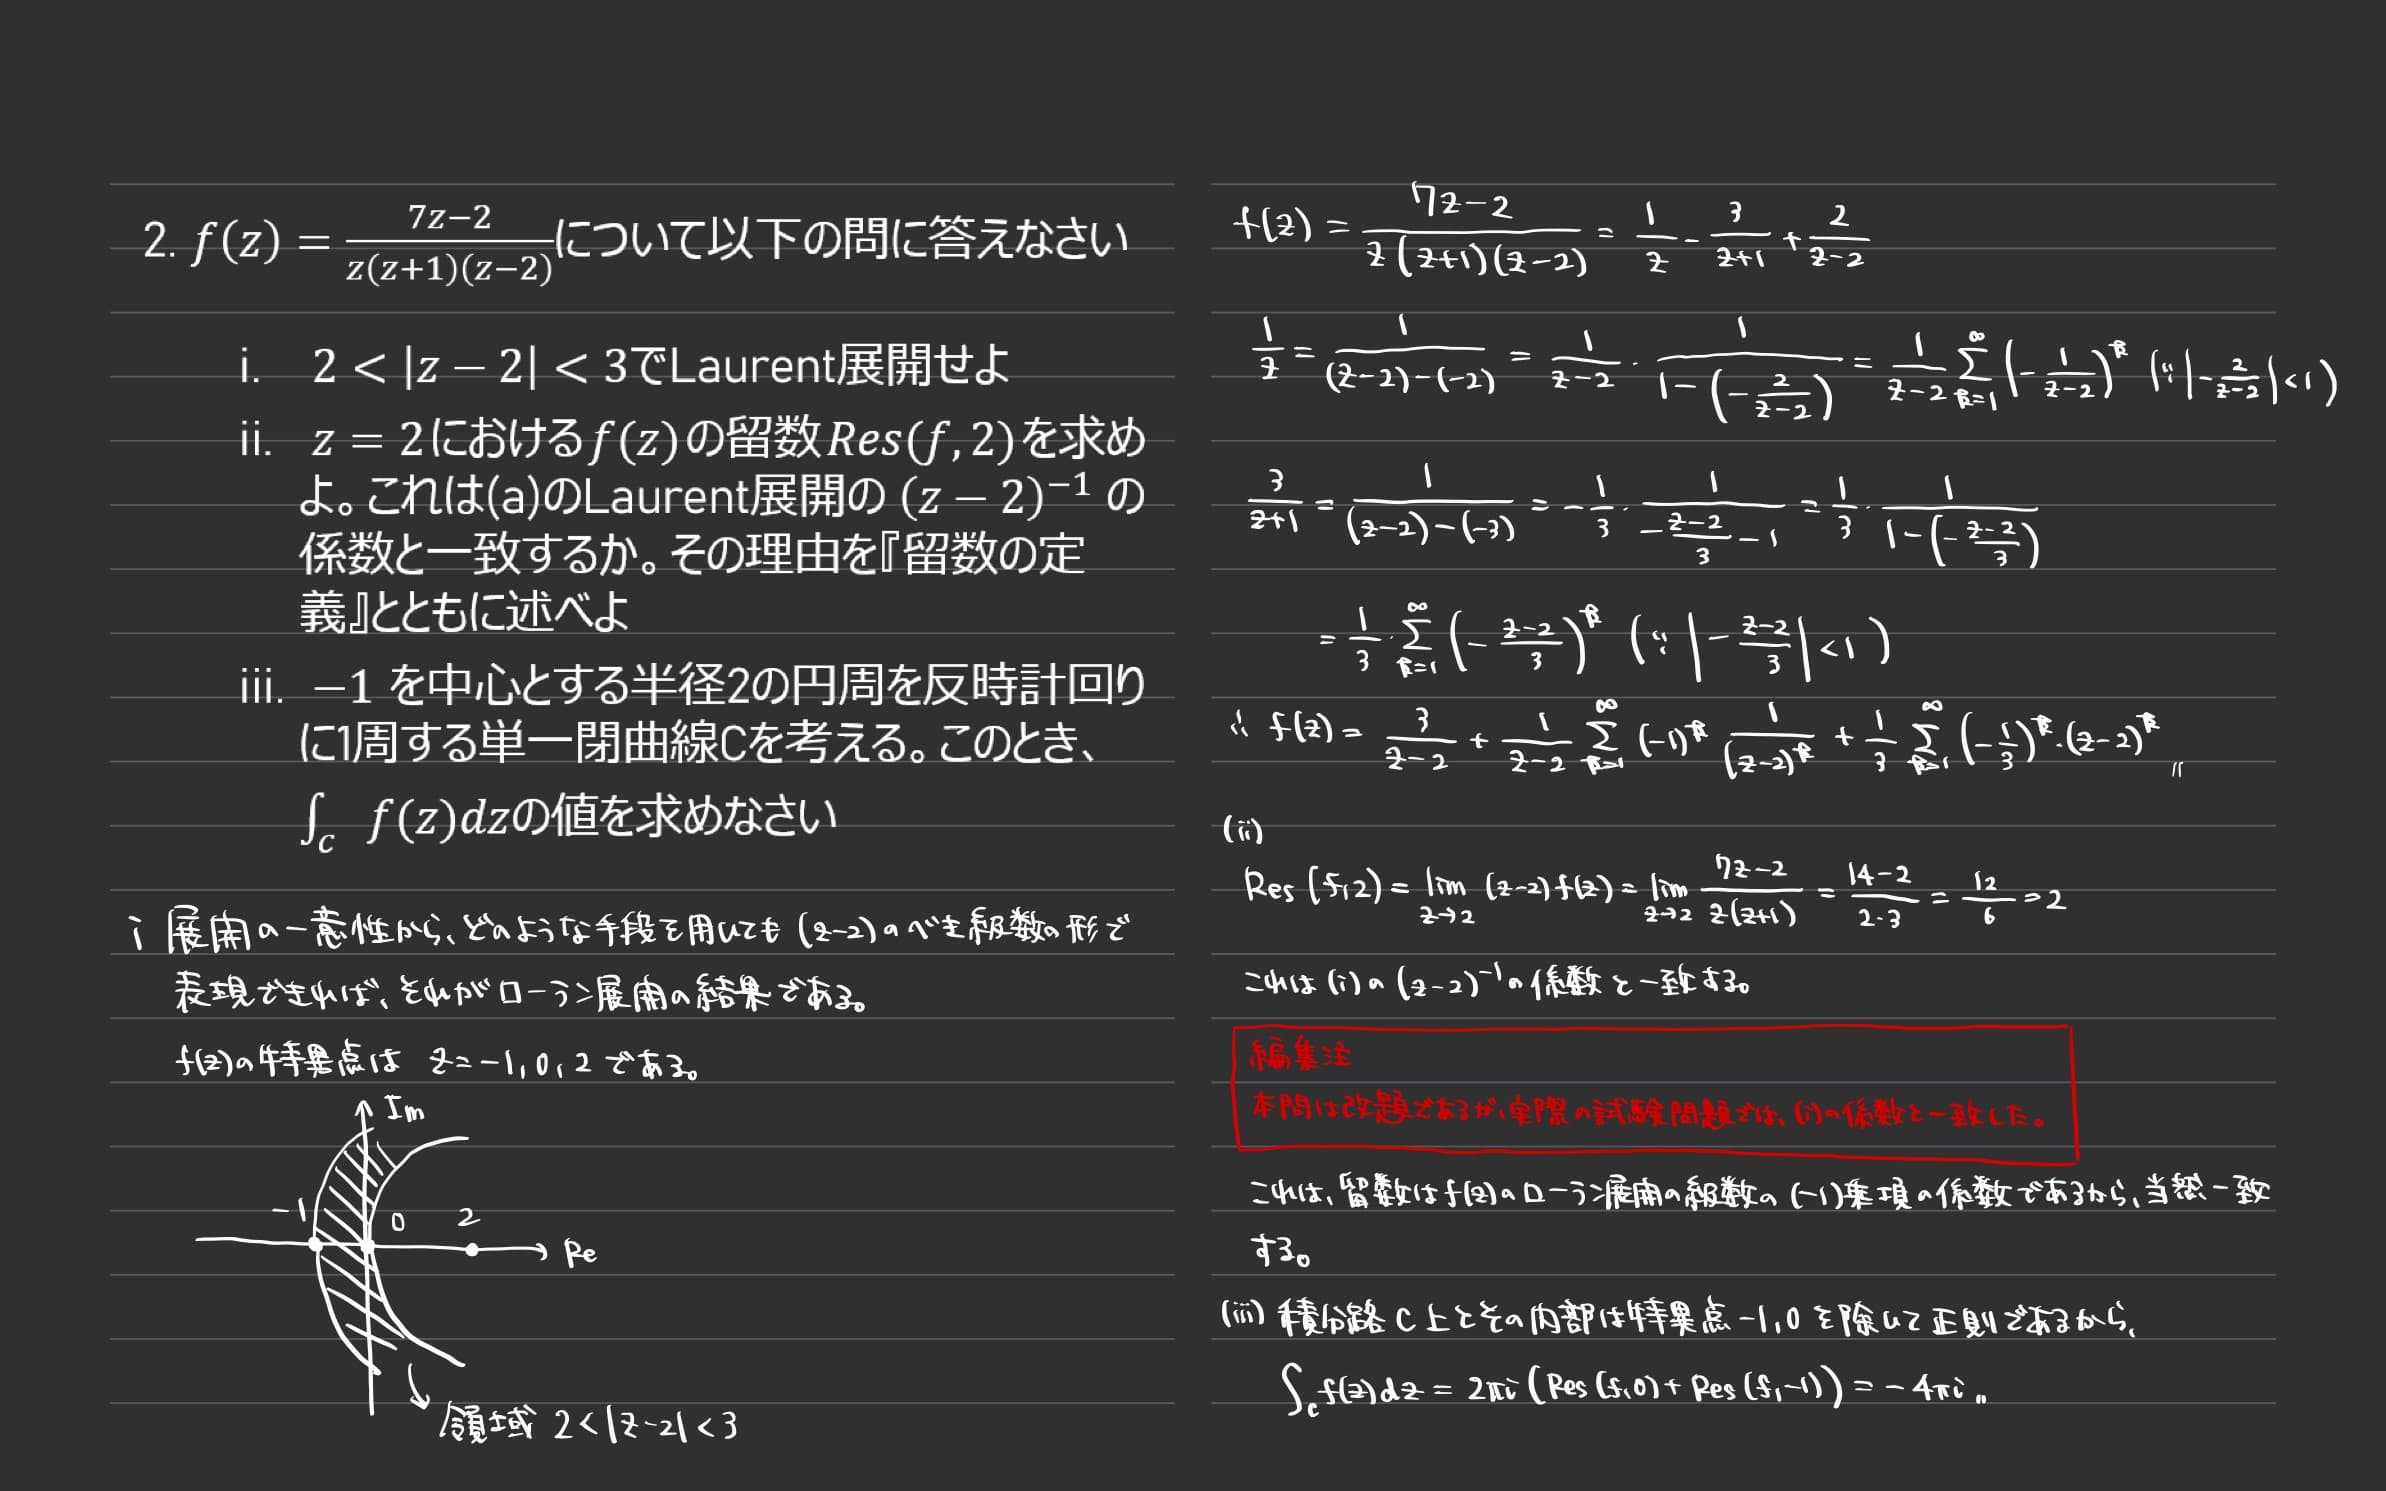 2. f(z) = \frac{7z-2}{z(z+1)(z-2)}について以下の問に答えなさい
i. 2 < |z − 2| < 3でLaurent展開せよ
ii. z = 2におけるf(z)の留数Res(f, 2)を求め
よ。これは(a)のLaurent展開の (z − 2)^{-1} の
係数と一致するか。その理由を『留数の定
義』とともに述べよ
iii. −1 を中心とする半径2の円周を反時計回り
に1周する単一閉曲線Cを考える。このとき、
∫_c f(z)dzの値を求めなさい
i 展開の一意性から、どのような手段を用いても (z-2)のべき級数の形で
表現できれば、それがローラン展開の結果である。
f(z)の特異点は z=-1, 0, 2 である。
Im
-1 0 2
Re
領域 2<|z-2|<3
f(z) = \frac{7z-2}{z(z+1)(z-2)} = \frac{1}{z} - \frac{3}{z+1} + \frac{2}{z-2}
\frac{1}{z} = \frac{1}{(z-2)-(-2)} = \frac{1}{z-2} · \frac{1}{1-(-\frac{2}{z-2})} = \frac{1}{z-2} \sum_{k=1}^{∞} (-\frac{1}{z-2})^k (∵ |-\frac{2}{z-2}|<1)
\frac{3}{z+1} = \frac{1}{(z-2)-(-3)} = -\frac{1}{3} · \frac{1}{-\frac{z-2}{3}-1} = \frac{1}{3} · \frac{1}{1-(-\frac{z-2}{3})}
= \frac{1}{3} · \sum_{k=1}^{∞} (-\frac{z-2}{3})^k (∵ |-\frac{z-2}{3}|<1)
∴ f(z) = \frac{3}{z-2} + \frac{1}{z-2} \sum_{k=1}^{∞} (-1)^k \frac{1}{(z-2)^k} + \frac{1}{3} \sum_{k=1}^{∞} (-\frac{1}{3})^k·(z-2)^k 〃
(ii)
Res(f,2) = \lim_{z→2} (z-2)f(z) = \lim_{z→2} \frac{7z-2}{z(z+1)} = \frac{14-2}{2·3} = \frac{12}{6} = 2
これは (i)の (z-2)^{-1}の係数と一致する。
編集注
本問は改題であるが、実際の試験問題では、(i)の係数と一致した。
これは、留数はf(z)のローラン展開の級数の(-1)乗項の係数であるから、当然一致
する。
(iii) 積分路C上とその内部は特異点-1,0を除いて正則であるから、
∫_c f(z)dz = 2πi(Res(f,0)+Res(f,-1)) = -4πi 〃